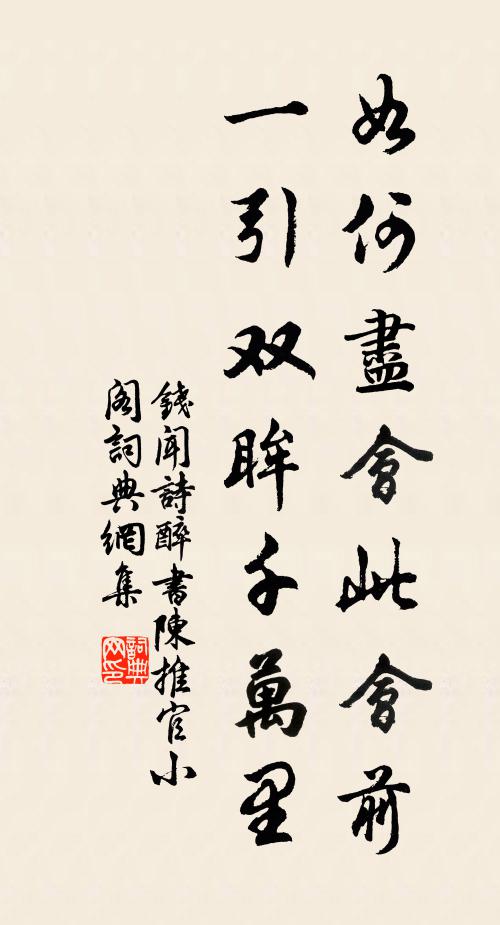 如何盡會此會前
一引双眸千萬里
錢聞詩醉書陳推官小
閣詞典網集
詞典
网印